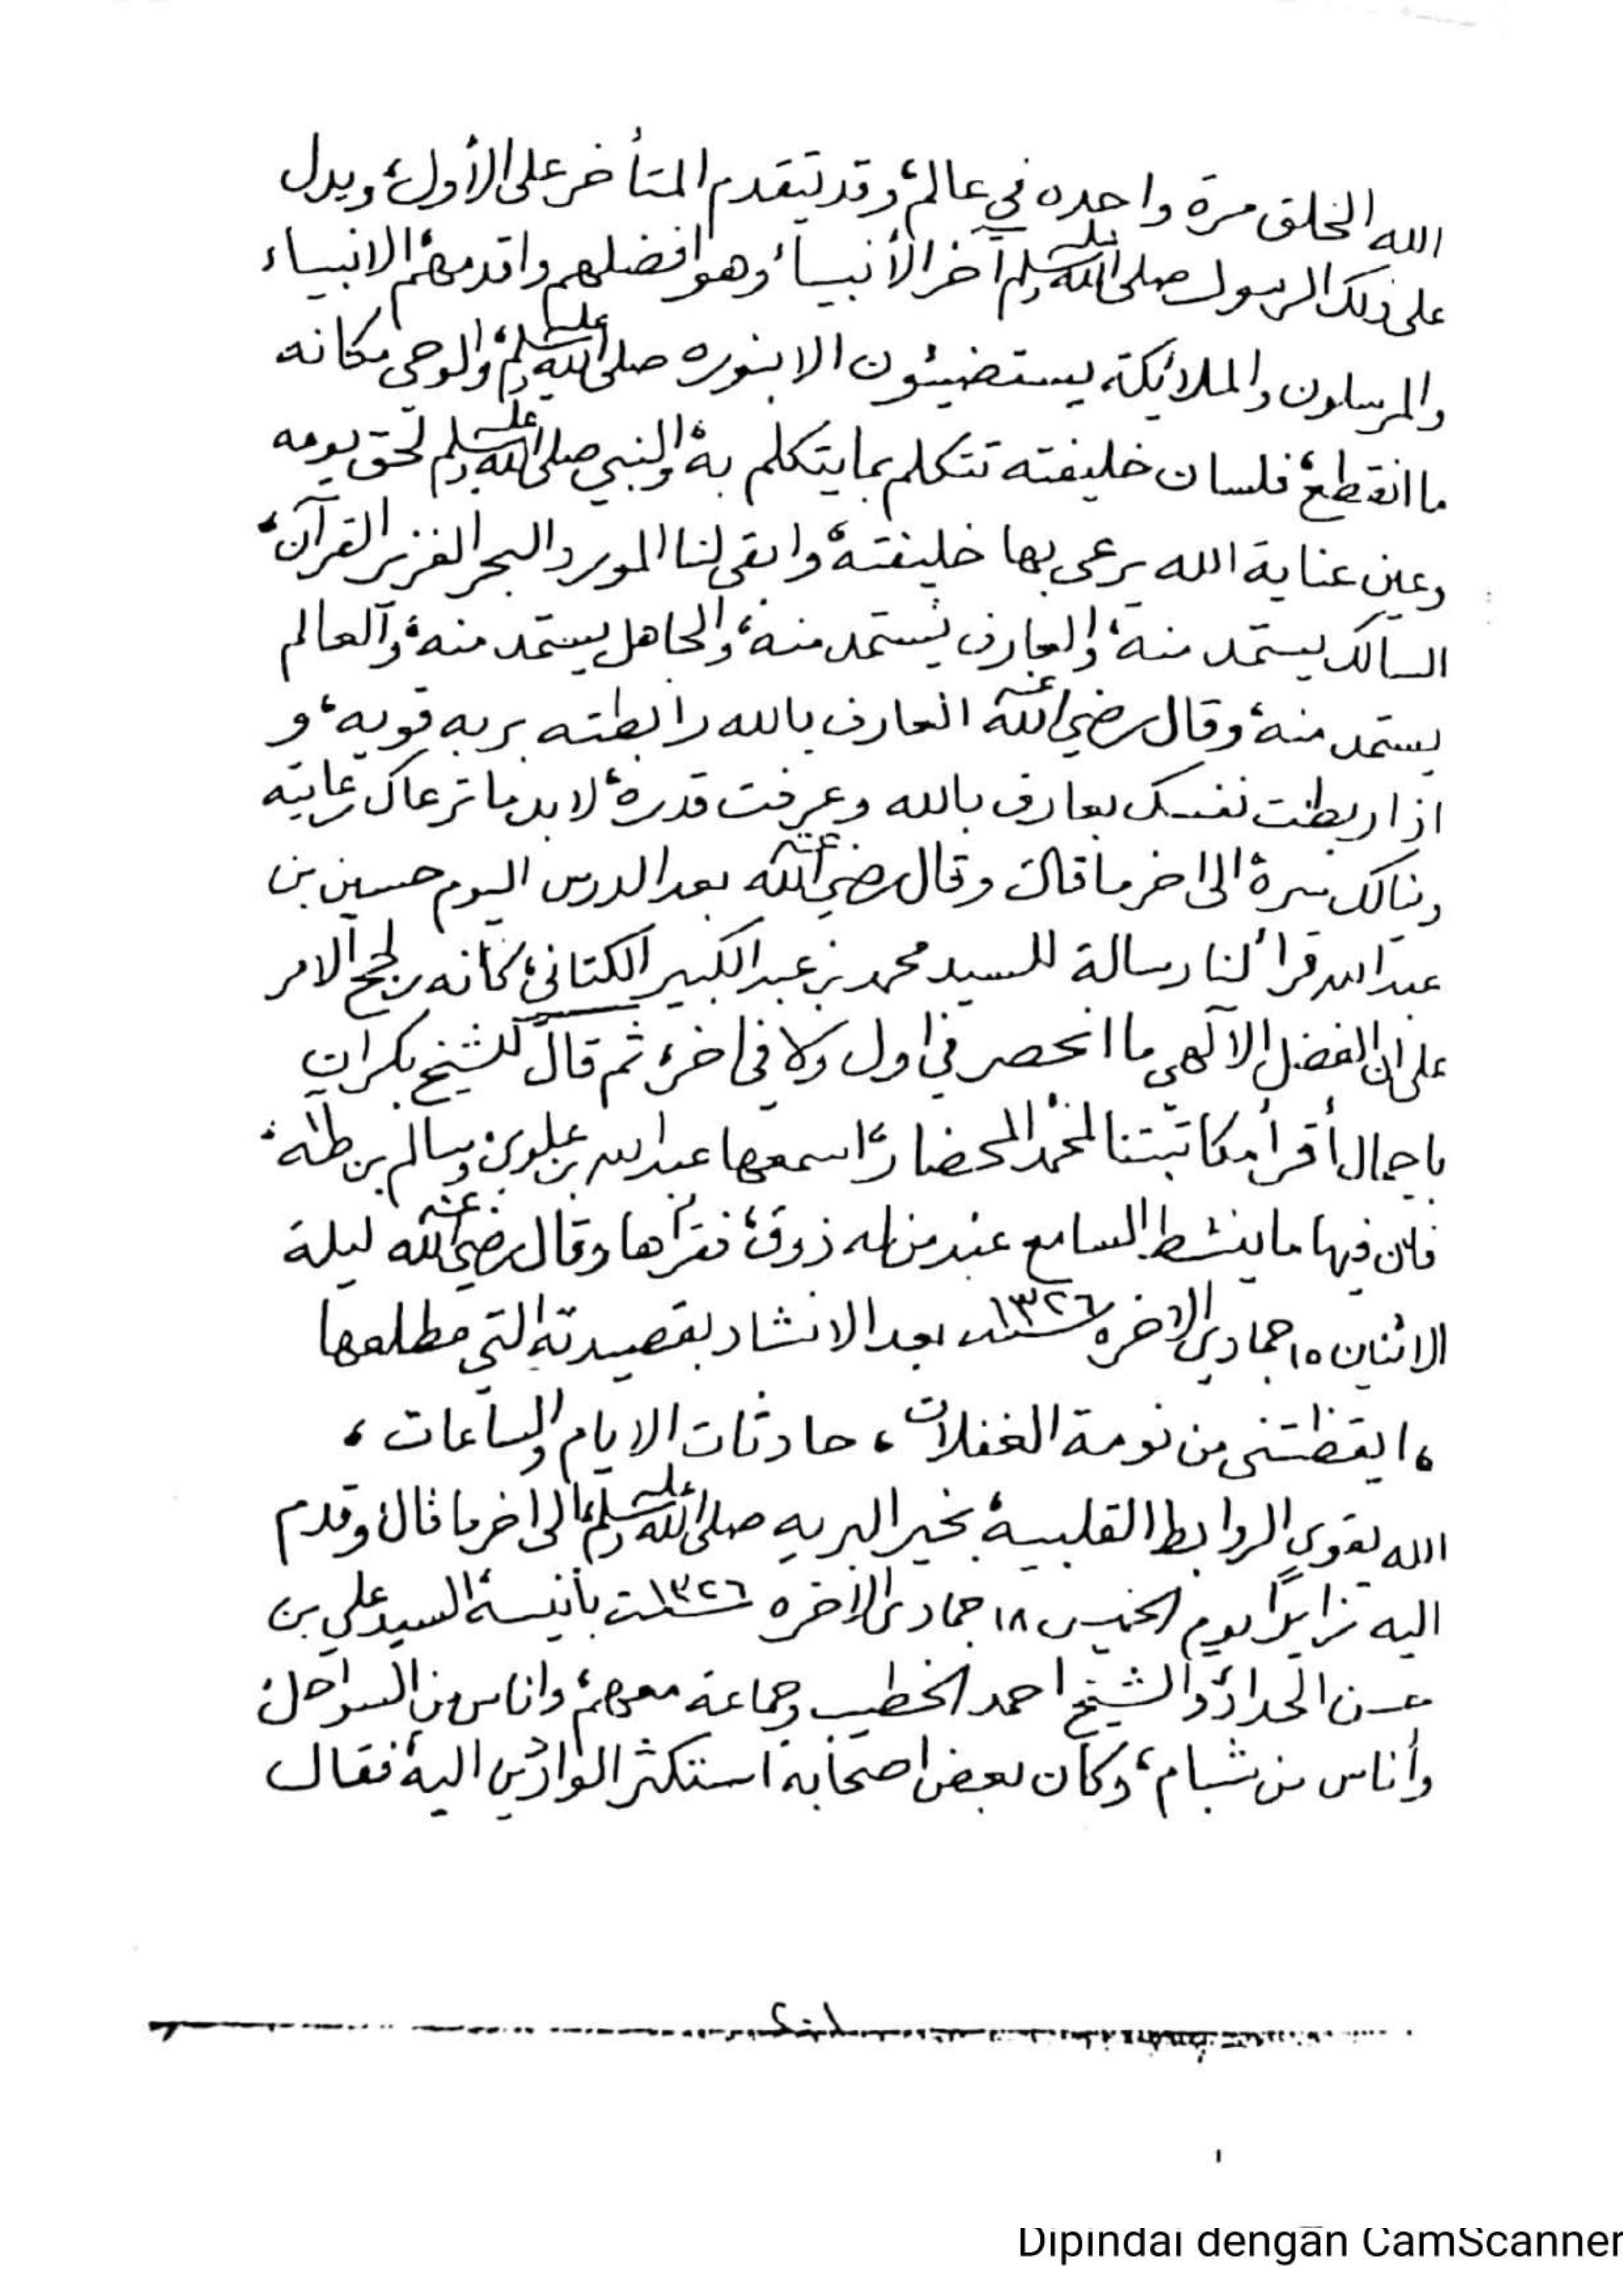 الله الخلق مرة واحده في عالم، وقد يتقدم المتأخر على الأول، ويدل
على ذلك الرسول صلى الله عليه وسلم آخر الأنبياء، وهو افضلهم واقدمهم، الانبياء
والمرسلون والملائكة، يستضيئون الا بنوره صلى الله عليه وسلم، والوحي مكانه
ما انقطع، فلسان خليفته تتكلم بما يتكلم به، والنبي صلى الله عليه وسلم لحق بربه
وعين عناية الله يرعى بها خليفته، وابقى لنا المورد والبحر الغزير القرآن،
السالك يستمد منه، والعارف يستمد منه، والجاهل يستمد منه، والعالم
يستمد منه، وقال رضي الله عنه العارف بالله رابطته بربه قويه، و
اذا ربطت نفسك بعارف بالله وعرفت قدره، لا بد ما ترعاك رعايته
وينالك سره، الى اخر ما قال، وقال رضي الله عنه بعد الدرس اليوم حسين بن
عبدالله قرأ لنا رسالة للسيد محمد بن عبدالكبير الكتاني، كانه رجح الامر
على ان الفضل الآلهي ما انحصر في اول ولا في اخر، ثم قال للشيخ بكران
باجمال أقرأ مكاتبتنا لمحمد المحضار، اسمعها عبدالله بن علوي، وسالم بن طه،
فان فيها ما ينشط السامع عند من له ذوق، فقرأها وقال رضي الله عنه ليلة
الاثنين ١٥ جمادى الاخره سنة ١٣٢٦ بعد الانشاد بقصيدته التي مطلعها
، ايقظتني من نومة الغفلات ، حادثات الايام والساعات ،
الله يقوي الروابط القلبية، بخير البريه صلى الله عليه وسلم، الى اخر ما قال، وقدم
اليه تزايرًا يوم الخميس ١٨ جمادى الاخره سنة ١٣٢٦ بأنيسة، السيد علي بن
حسن الحداد، والشيخ احمد الخطيب وجماعة معهم، واناس من السواحل،
وأناس من شبام، وكان بعض اصحابه استكثر الواردين اليه، فقال
Dipindai dengan CamScanner